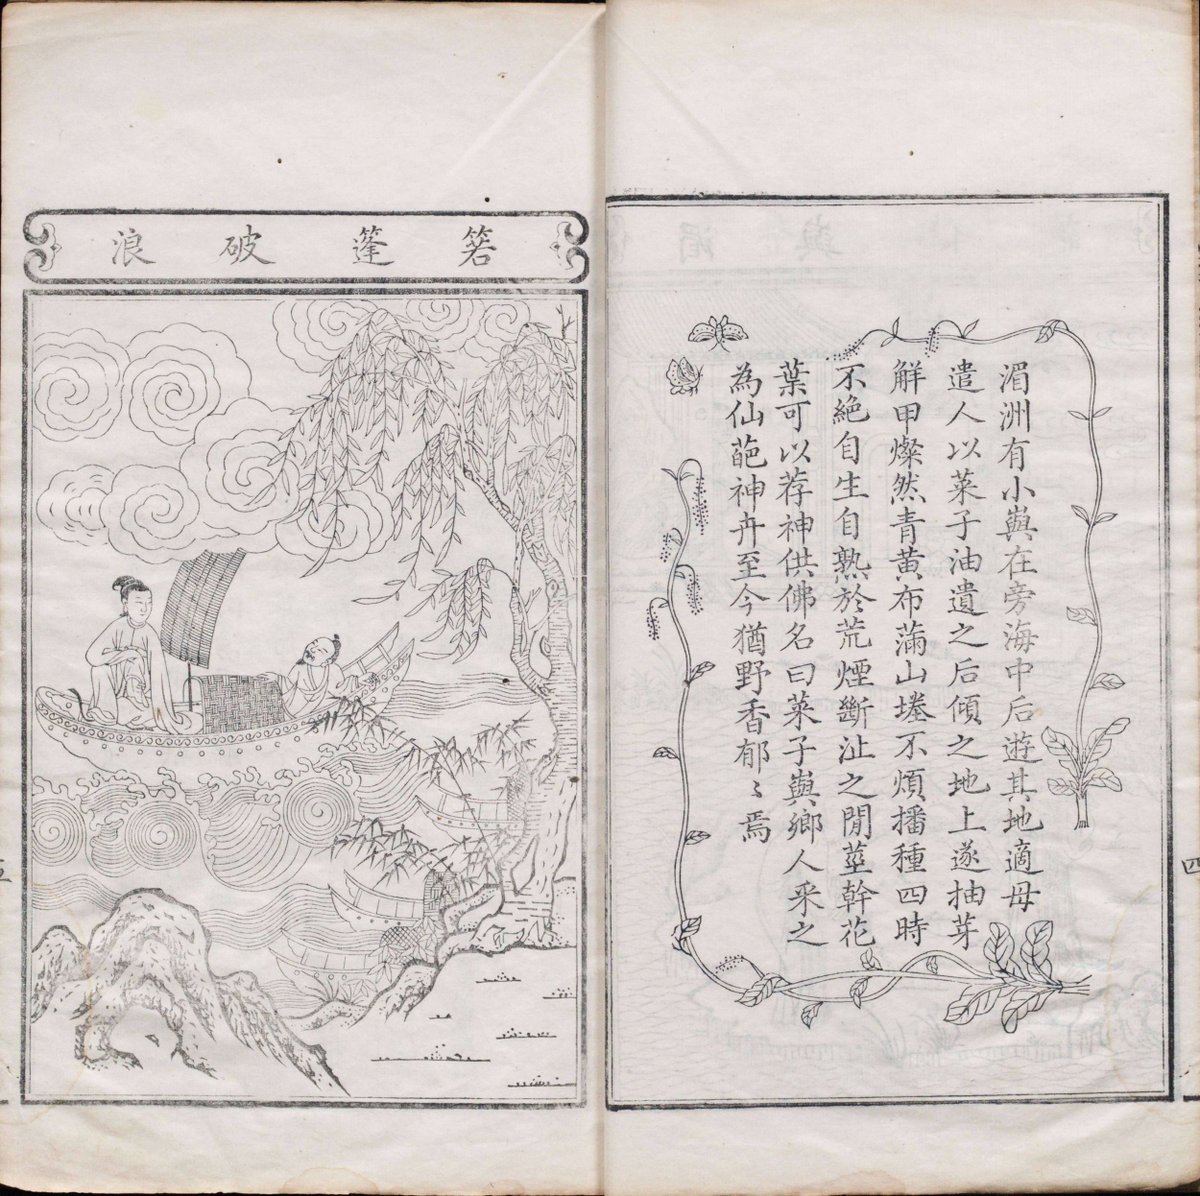 湄洲有小嶼在旁海中后遊其地適母
遣人以菜子油遺之后傾之地上遂抽芽
解甲燦然青黃布滿山塸不煩播種四時
不絕自生自熟於荒煙斷沚之閒莖幹花
葉可以荐神供佛名曰菜子嶼鄉人采之
為仙葩神卉至今猶野香郁〻焉
四
箬蓬破浪
五